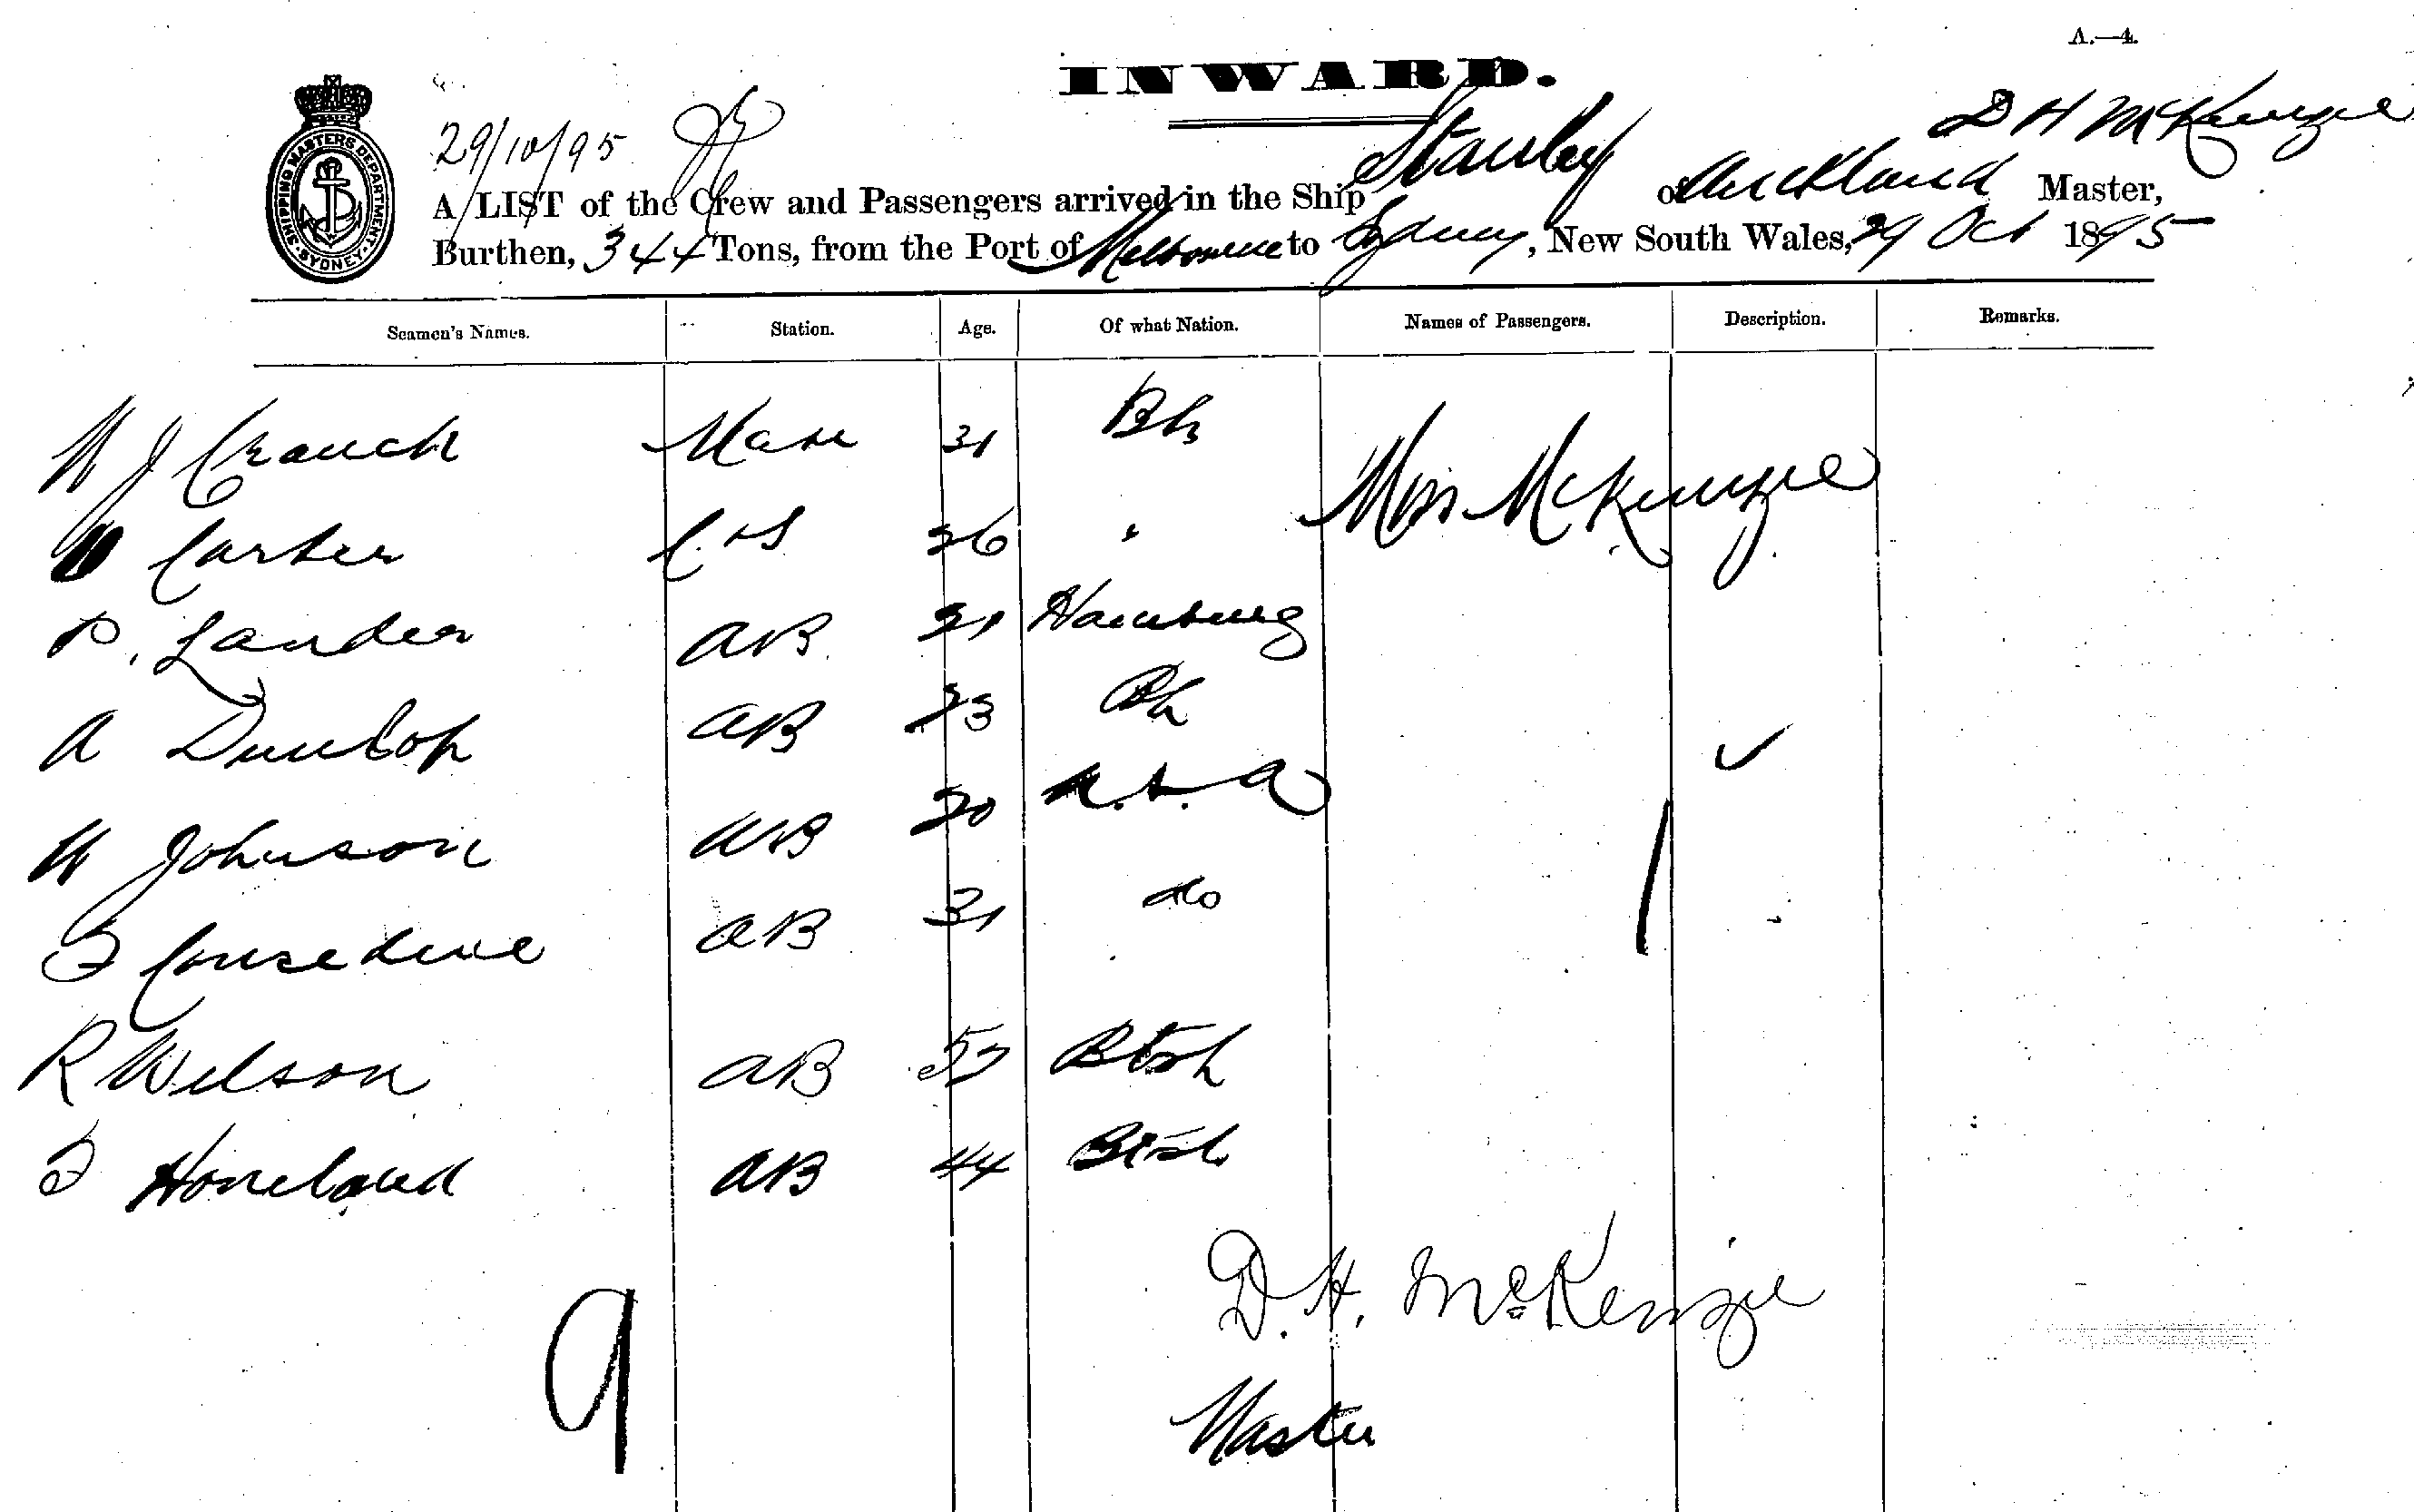 A.—4.
INWARD.
29/10/95
D H McKenzie
A LIST of the Crew and Passengers arrived in the Ship Stanley of Auckland Master,
Burthen, 344 Tons, from the Port of Melbourne to Sydney, New South Wales, 29 Oct 1895
SHIPPING MASTERS DEPARTMENT · SYDNEY ·
Seamen's Names. Station. Age. Of what Nation. Names of Passengers. Description. Remarks.
W J Crouch Mate 31 Bh
Carter C & S 26 " Miss McKenzie
P. Lander AB 21 Hamburg
A Dunlop AB 23 Bh
W Johnson AB 20
Consedine AB 31 do
R Wilson AB Btsh
Honeland AB 44
D. H. McKenzie
9
Master